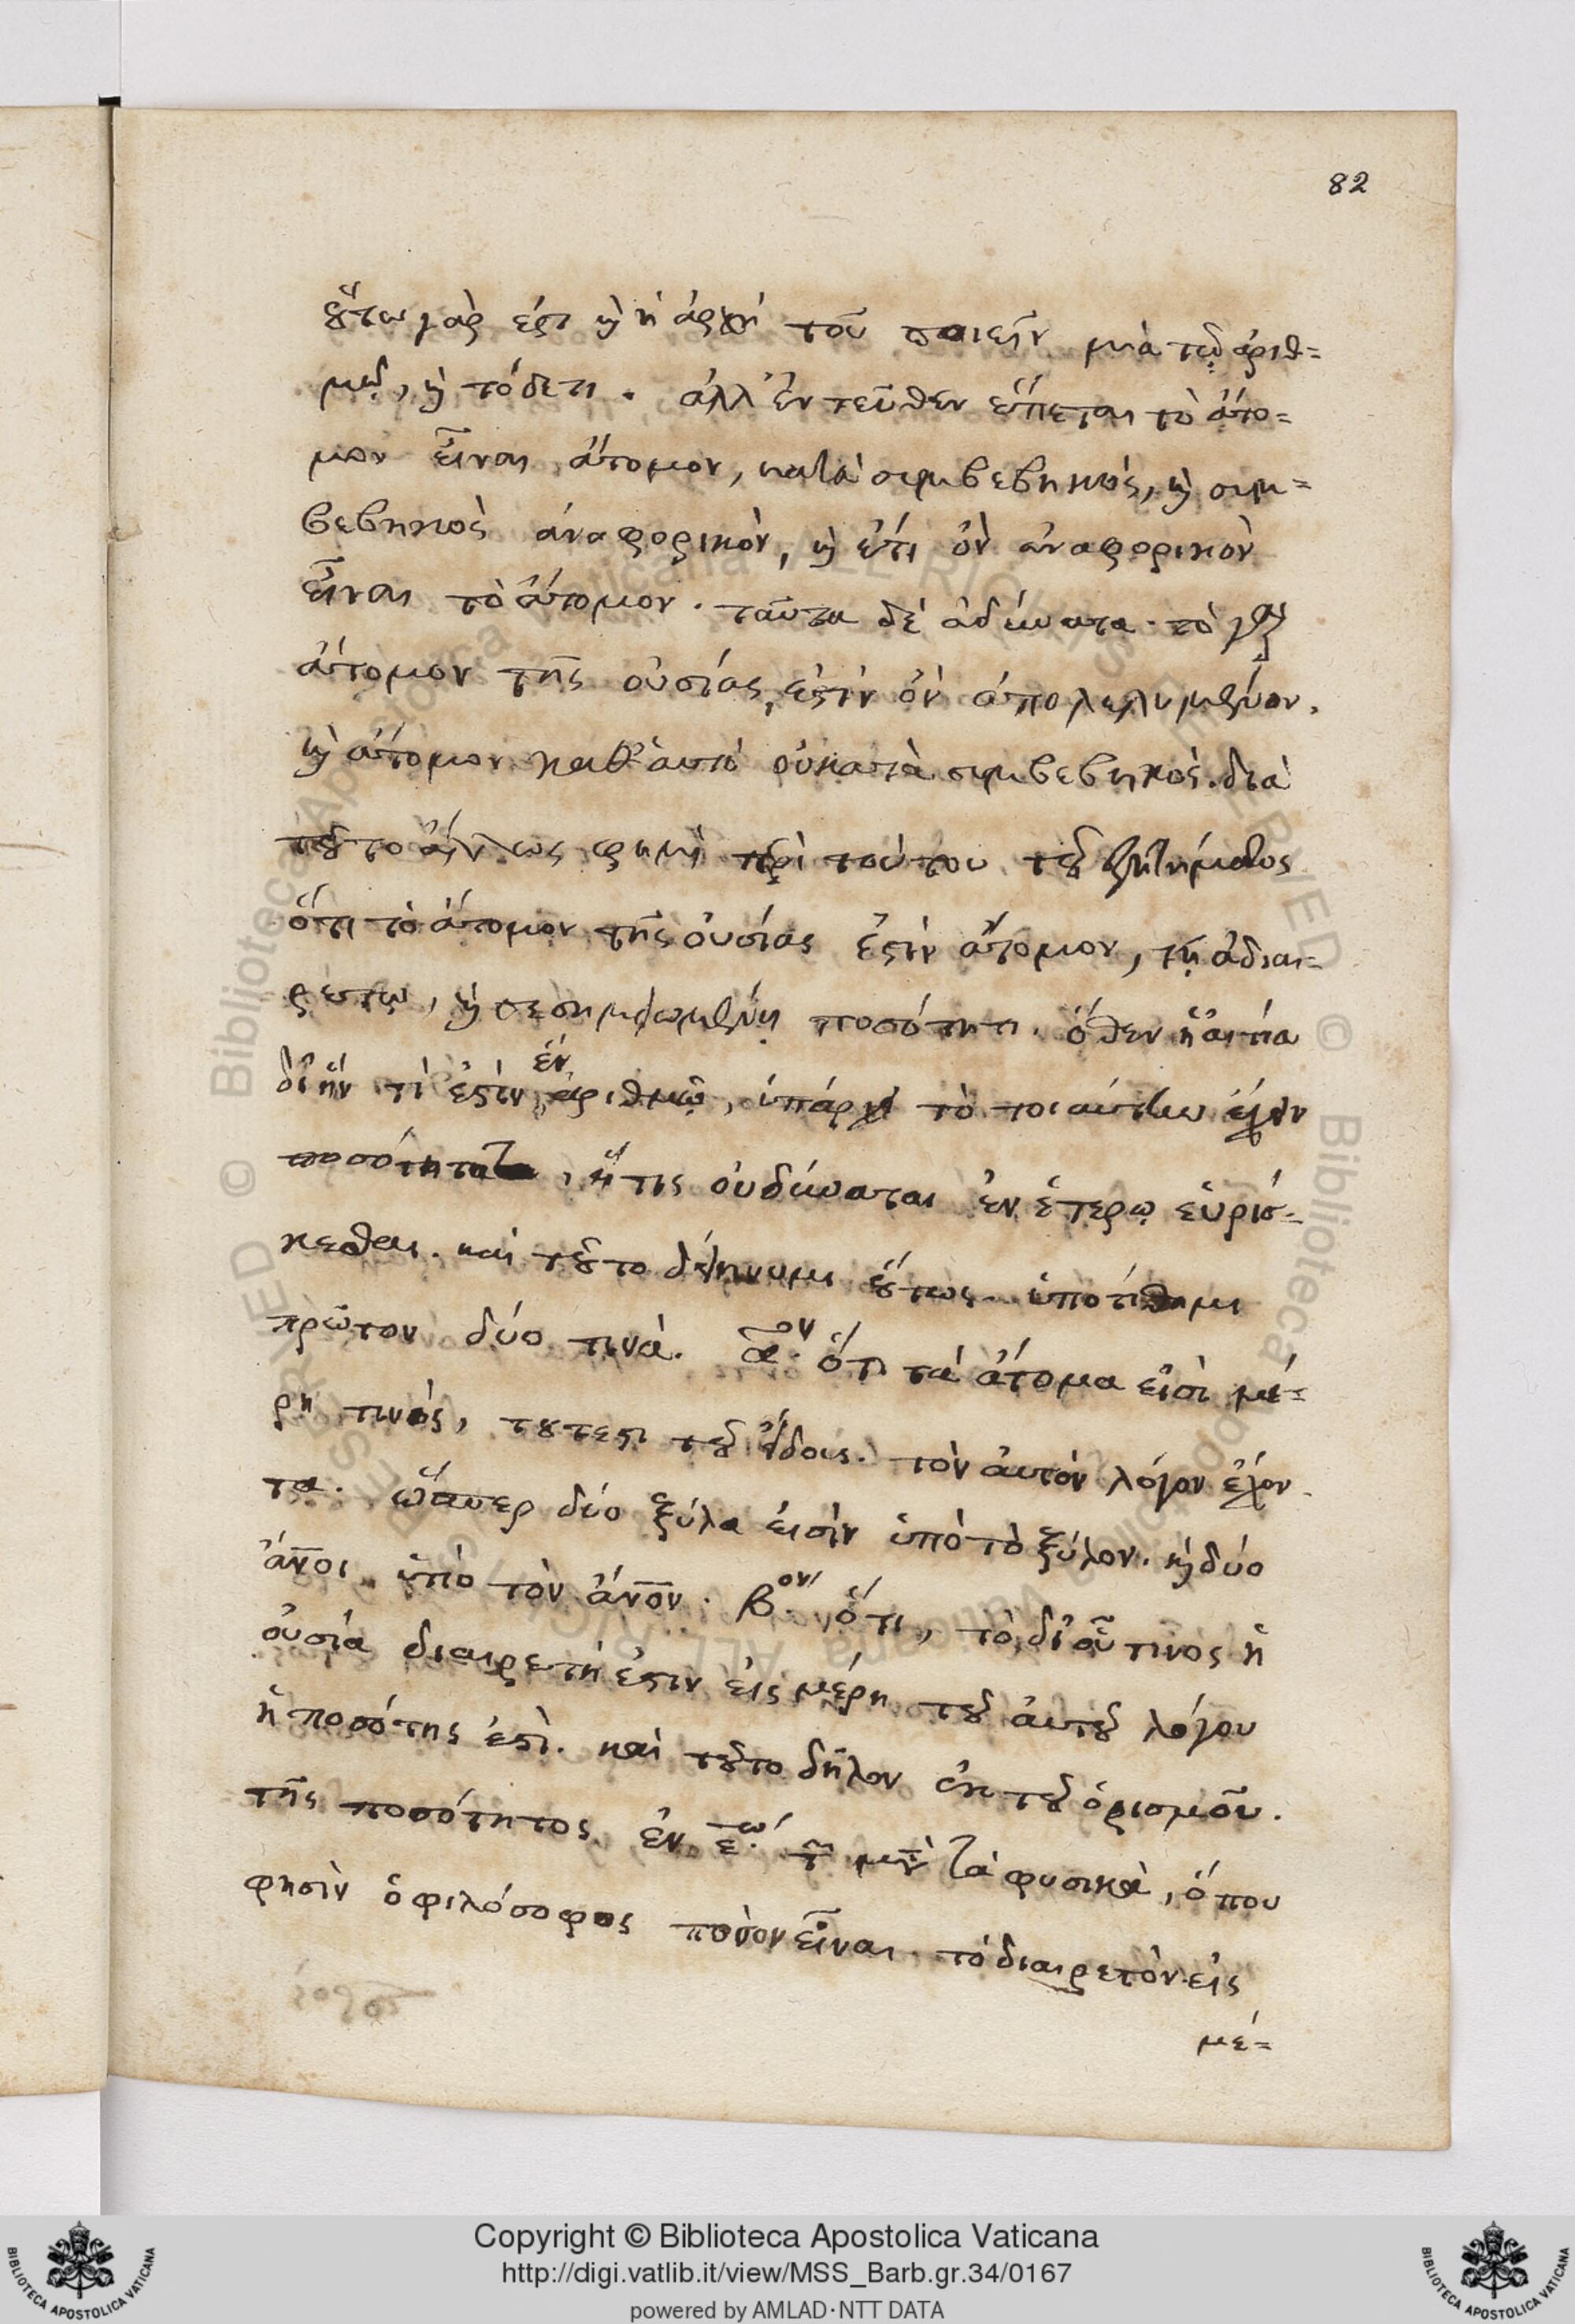 82
οὕτω γάρ ἐστι καὶ ἡ ἀρχὴ τοῦ ποιεῖν μία τῷ ἀριθ=
μῷ, καὶ τόδε τι. ἀλλ' ἐντεῦθεν ἕπεται τὸ ἄτο=
μον εἶναι ἄτομον, κατὰ συμβεβηκός, καὶ συμ=
βεβηκὸς ἀναφορικὸν, καὶ ἔτι ὂν ἀναφορικὸν
εἶναι τὸ ἄτομον. ταῦτα δὲ ἀδύνατα. τὸ γὰρ
ἄτομον τῆς οὐσίας, ἐστὶν ὂν ἀπολελυμένον.
καὶ ἄτομον καθ' αὑτὸ οὐ κατὰ συμβεβηκός. διὰ
τοῦτο ἄλλως φημὶ περὶ τούτου τοῦ ζητήματος
ὅτι τὸ ἄτομον τῆς οὐσίας ἐστὶν ἄτομον, τῇ ἀδιαι=
ρέτῳ, καὶ σεσημειωμένῃ ποσότητι. ὅθεν ἡ αἰτία
δι' ἥν τί ἐστιν ἓν ἀριθμῷ, ὑπάρχει τὸ τοιαύτην ἔχειν
ποσότητα, ἥτις οὐ δύναται ἐν ἑτέρῳ εὑρίσ=
κεσθαι. καὶ τοῦτο δείκνυμι οὕτως. ὑποτίθημι
πρῶτον δύο τινά. α.ον ὅτι τὰ ἄτομα εἰσὶ μέ=
ρη τινός, τουτέστι τοῦ εἴδους. τὸν αὐτὸν λόγον ἔχον
τα. ὥσπερ δύο ξύλα εἰσὶν ὑπὸ τὸ ξύλον. καὶ δύο
ἄνοι ὑπὸ τὸν ἄνον. β.ον ὅτι, τὸ δι' οὗ τινος ἡ
οὐσία διαιρετή ἐστιν εἰς μέρη τοῦ αὐτοῦ λόγου
ἡ ποσότης ἐστί. καὶ τοῦτο δῆλον ἐκ τοῦ ὁρισμοῦ.
τῆς ποσότητος ἐν ε.τῳ τῶν μετὰ τὰ φυσικὰ, ὅπου
φησὶν ὁ φιλόσοφος ποσὸν εἶναι τὸ διαιρετὸν εἰς
μέ=
Copyright © Biblioteca Apostolica Vaticana
http://digi.vatlib.it/view/MSS_Barb.gr.34/0167
powered by AMLAD·NTT DATA
BIBLIOTECA APOSTOLICA VATICANA
BIBLIOTECA APOSTOLICA VATICANA